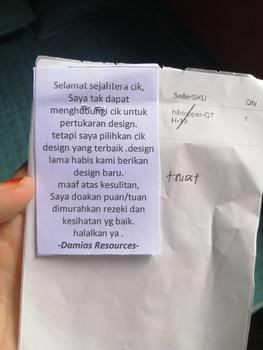 Selamat sejahtera cik,
Saya tak dapat
menghubungi cik untuk
pertukaran design.
tetapi saya pilihkan cik
design yang terbaik .design
lama habis kami berikan
design baru.
maaf atas kesulitan,
Saya doakan puan/tuan
dimurahkan rezeki dan
kesihatan yg baik.
halalkan ya .
-Damias Resources-
SellerSKU Qty
hif-topper-QT 1